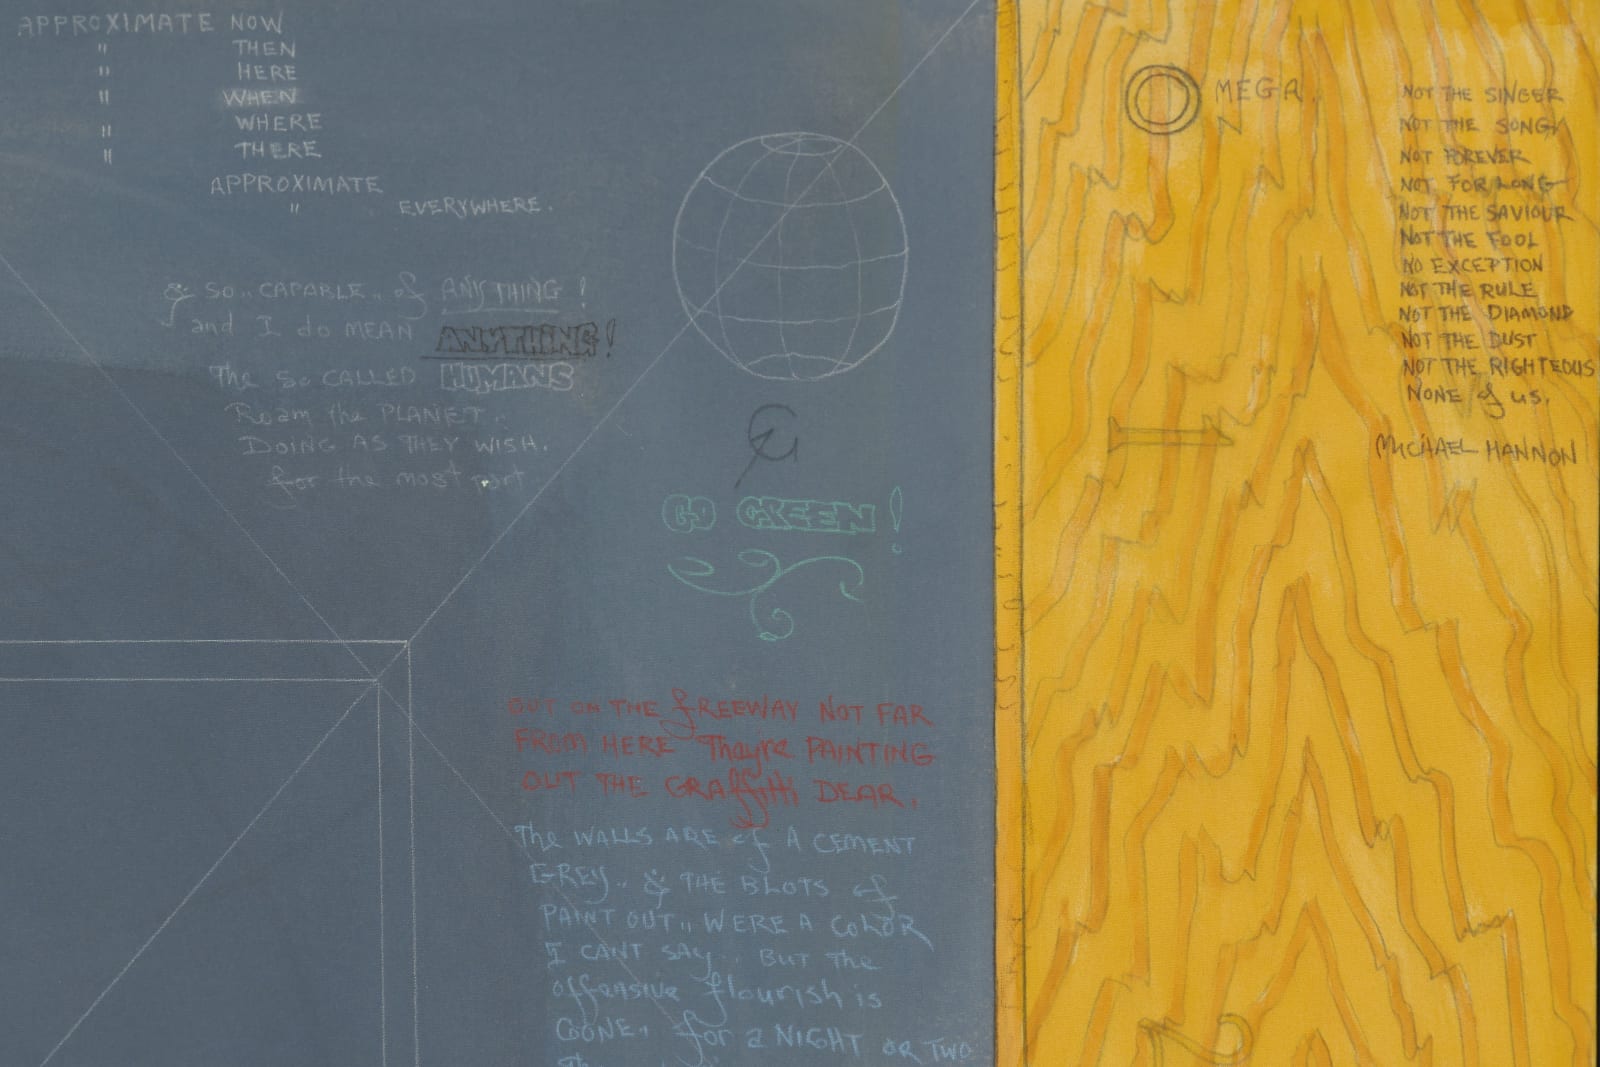 APPROXIMATE NOW
" THEN
" HERE
" WHEN
" WHERE
" THERE
APPROXIMATE
" EVERYWHERE.
& SO,, CAPABLE,, of ANYTHING!
and I do MEAN ANYTHING!
The So CALLED HUMANS
Roam the PLANET..
DOING AS THEY WISH.
for the most part
GO GREEN!
OUT ON THE fREEWAY NOT FAR
FROM HERE They're PAINTING
OUT THE GRAffitti DEAR.
The WALLS ARE of A CEMENT
GREY.. & THE BLOTS of
PAINT OUT,, WERE A COLOR
I CANT SAY.. BUT The
offensive flourish is
GONE. for a NIGHT OR TWO
MEGA.
NOT THE SINGER
NOT THE SONG
NOT FOREVER
NOT FOR LONG
NOT THE SAVIOUR
NOT THE FOOL
NO EXCEPTION
NOT THE RULE
NOT THE DIAMOND
NOT THE DUST
NOT THE RIGHTEOUS
NONE of US.
MICHAEL HANNON